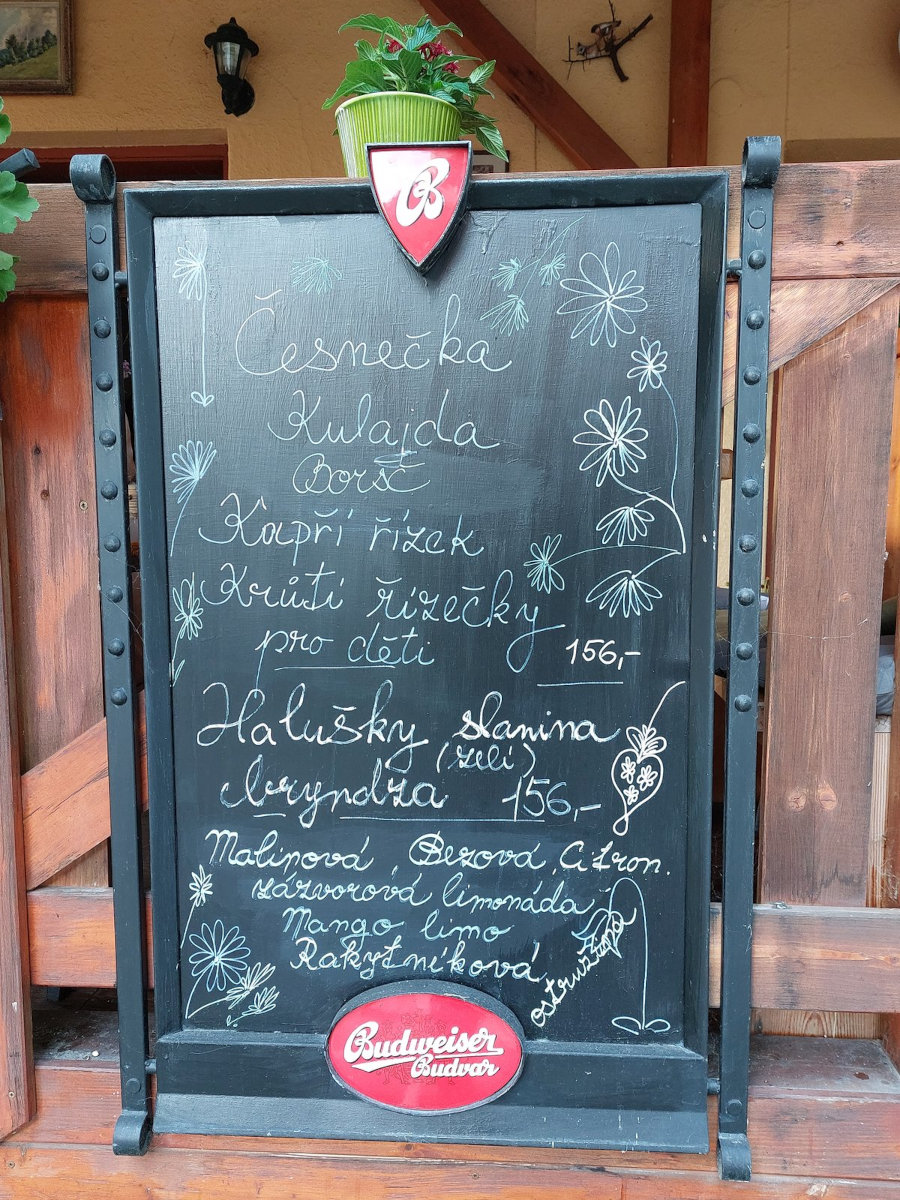 B
Česnečka
Kulajda
Boršč
Kapří řízek
Krůtí řízečky
pro děti 156,-
Halušky slanina
(zelí)
bryndza 156,-
Malinová, Bezová, Citron.
zázvorová limonáda
Mango limo
Rakytníková
ostružina
Budweiser
Budvar